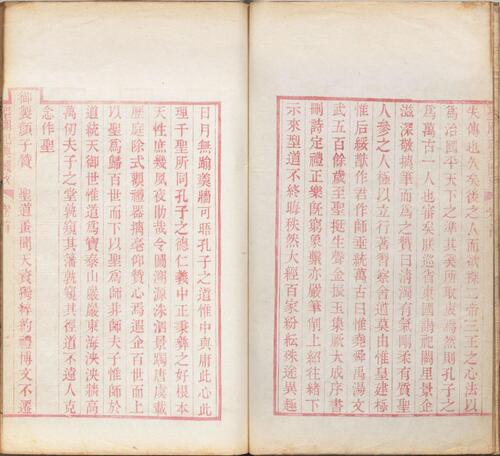 失傳也久矣後之人而欲探二帝三王之心法以
為治國平天下之準其奚所取衷焉然則孔子之
為萬古一人也審矣朕巡省東國謁祀闕里景企
滋深敬摛筆而為之贊曰清濁有氣剛柔有質聖
人參之人極以立行著習察舍道莫由惟皇建極
惟后綏猷作君作師垂統萬古曰惟堯舜禹湯文
武五百餘歲至聖挺生聲金振玉集厥大成序書
刪詩定禮正樂既窮象繫亦嚴筆削上紹往緒下
示來型道不終晦秩然大經百家紛紜殊途異趣
日月無踰羹牆可晤孔子之道惟中與庸此心此
理千聖所同孔子之德仁義中正秉彝之好根本
天性庶幾夙夜勗哉令圖溯源洙泗景躅唐虞載
歷庭除式觀禮器摛毫仰贊心焉遐企百世而上
以聖為歸百世而下以聖為師非師夫子惟師於
道統天御世惟道為寶泰山巖巖東海泱泱牆高
萬仞夫子之堂孰窺其藩孰窺其徑道不遠人克
念作聖
御製顏子贊 聖道蚤聞天資獨粹約禮博文不遷